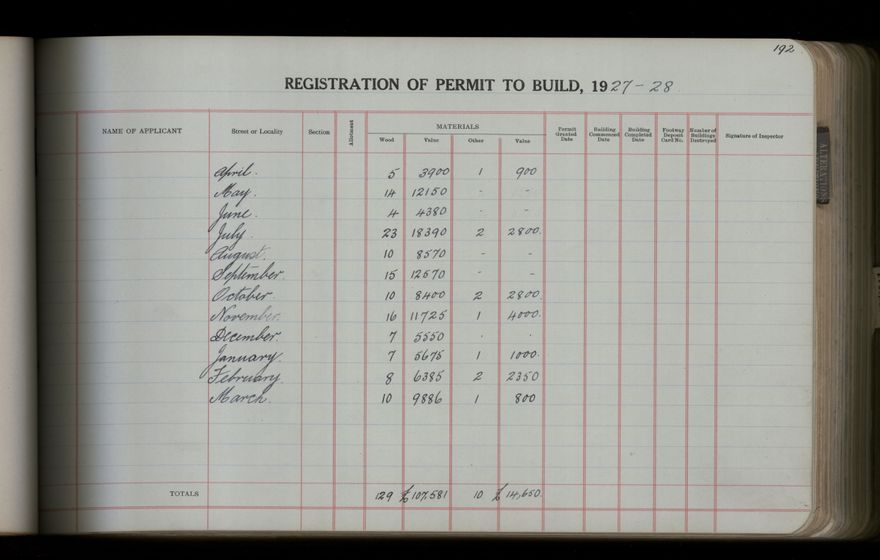 192
REGISTRATION OF PERMIT TO BUILD, 1927-28
NAME OF APPLICANT Street or Locality Section Allotment MATERIALS Wood Value Other Value Permit Granted Date Building Commenced Date Building Completed Date Footway Deposit Card No. Number of Buildings Destroyed Signature of Inspector
April. 5 3900 1 900
May. 14 12150 - -
June. 4 4380 - -
July. 23 18390 2 2800.
August. 10 8570 - -
September. 15 12570 - -
October. 10 8400 2 2800.
November. 16 11725 1 4000.
December. 7 5550 . .
January. 7 5675 1 1000.
February. 8 6385 2 2350
March. 10 9886 1 800
TOTALS 129 £107,581 10 £14,650.
ALTERATIONS